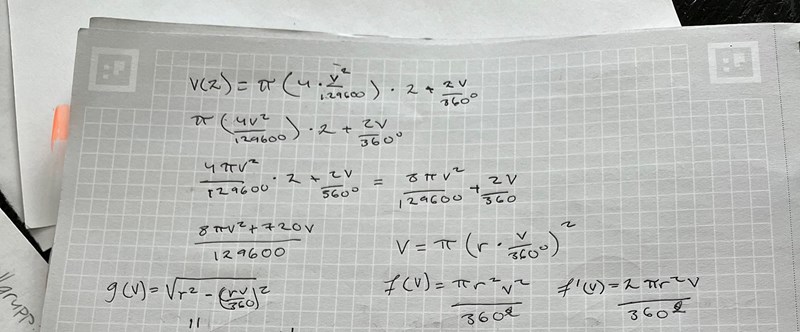 V(2) = π (4 · v²/129600) · 2 + 2v/360°
π (4v²/129600) · 2 + 2v/360°
4πv²/129600 · 2 + 2v/360° = 8πv²/129600 + 2v/360
8πv²+720v/129600
V = π (r · v/360°)²
g(v) = √r² - (rv/360)²
f(v) = πr²v²/360²
f'(v) = 2πr²v/360²